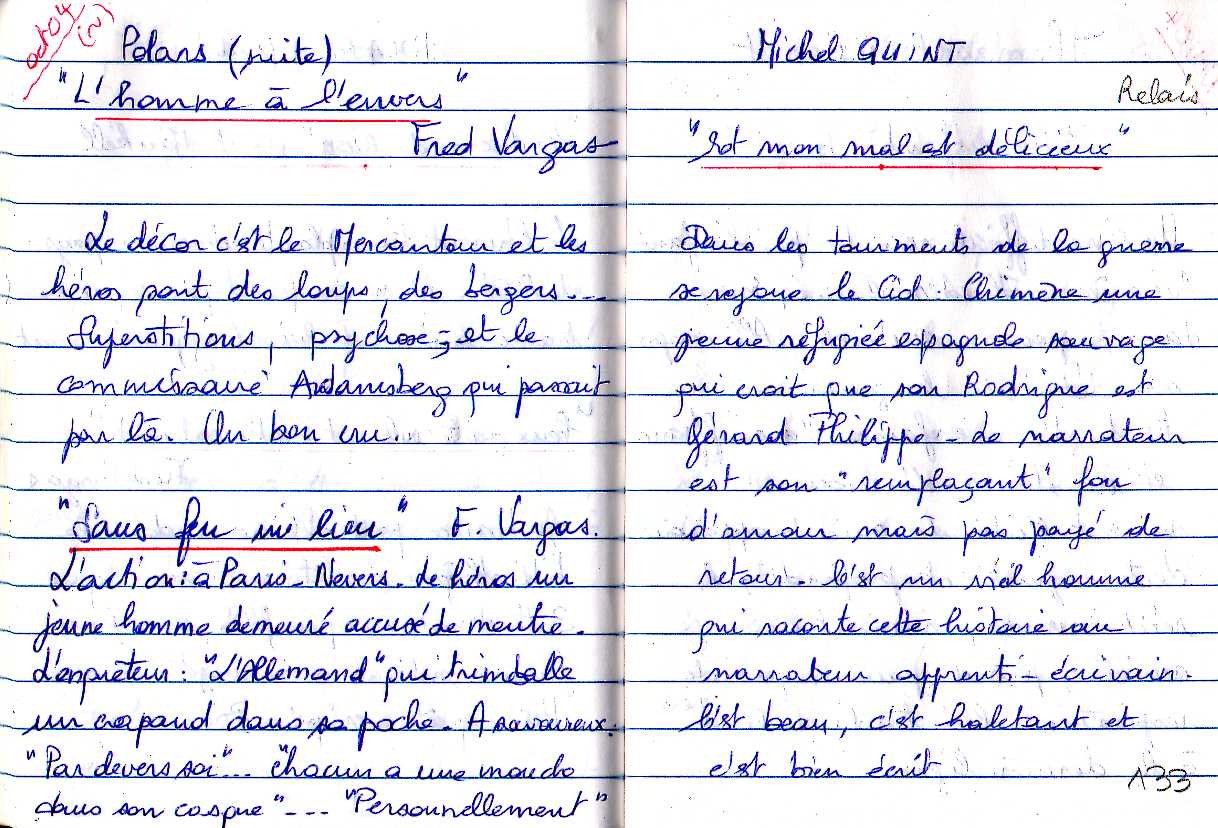 oct 04
(2)
Polars (suite)
"L'homme à l'envers"
Fred Vargas
Le décor c'est le Mercantour et les
héros sont des loups, des bergers...
Superstitions, psychose, et le
commissaire Adamsberg qui passait
par là. Un bon cru.
"Sans feu ni lieu" F. Vargas.
L'action : à Paris - Nevers. Le héros un
jeune homme demeuré accusé de meutre.
L'enquêteur : "L'Allemand" qui trimballe
un crapaud dans sa poche. A savoureux.
"Par devers soi"... "chacun a une
dans son casque"--- "Personnellement"
Michel QUINT
Relais
"Et mon mal est délicieux"
Dans les tourments de la guerre
se rejoue le Cid. Chimène une
jeune réfugiée espagnole sauvage
qui croit que son Rodrigue est
Gérard Philippe - Le narrateur
est son "remplaçant" fou
d'amour mais pas payé de
retour. C'est un vieil homme
qui raconte cette histoire au
narrateur apprenti-écrivain.
C'est beau, c'est haletant et
c'est bien écrit
133